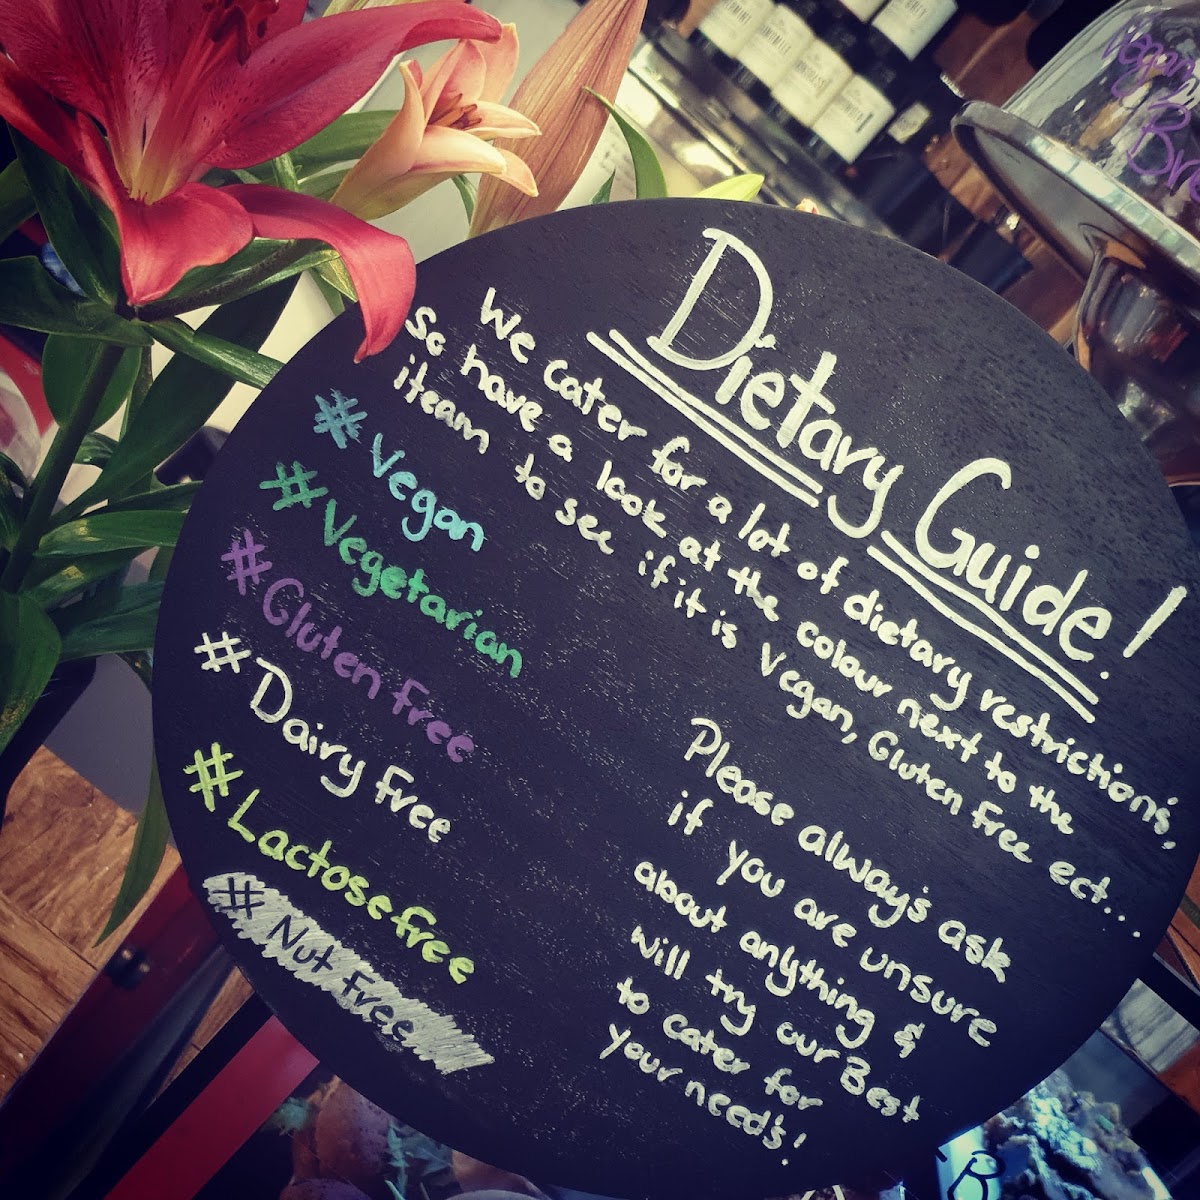 Dietary Guide!
We cater for a lot of dietary restriction's,
So have a look at the colour next to the
iteam to see if it is Vegan, Gluten Free ect...
#Vegan
#Vegetarian
#Gluten Free
#Dairy Free
#Lactosefree
# Nut Free
Please alway's ask
if you are unsure
about anything &
will try our Best
to cater for
your need's!
Vegan